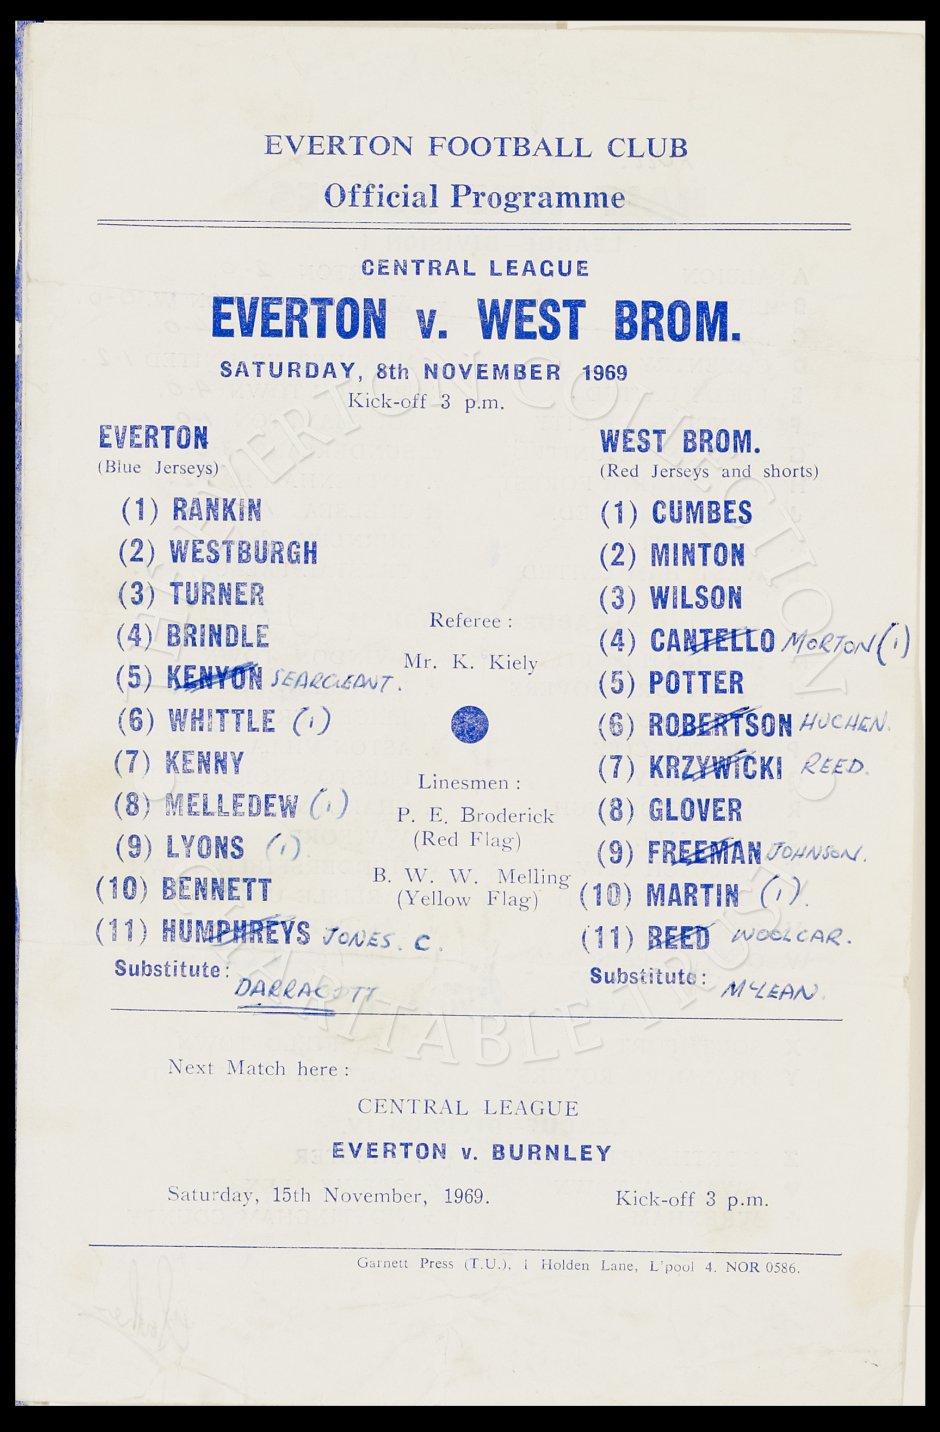 EVERTON FOOTBALL CLUB
Official Programme
CENTRAL LEAGUE
EVERTON v. WEST BROM.
SATURDAY, 8th NOVEMBER 1969
Kick-off 3 p.m.
EVERTON
(Blue Jerseys)
(1) RANKIN
(2) WESTBURGH
(3) TURNER
(4) BRINDLE
(5) KENYON SEARGEANT.
(6) WHITTLE (1)
(7) KENNY
(8) MELLEDEW (1)
(9) LYONS (1)
(10) BENNETT
(11) HUMPHREYS JONES. C.
Substitute:
DARRACOTT
Referee:
Mr. K. Kiely
Linesmen:
P. E. Broderick
(Red Flag)
B. W. W. Melling
(Yellow Flag)
WEST BROM.
(Red Jerseys and shorts)
(1) CUMBES
(2) MINTON
(3) WILSON
(4) CANTELLO MORTON (1)
(5) POTTER
(6) ROBERTSON HUCHEN.
(7) KRZYWICKI REED.
(8) GLOVER
(9) FREEMAN JOHNSON.
(10) MARTIN (1).
(11) REED WOOLCAR.
Substitute: McLEAN.
Next Match here:
CENTRAL LEAGUE
EVERTON v. BURNLEY
Saturday, 15th November, 1969. Kick-off 3 p.m.
Garnett Press (T.U.), 1 Holden Lane, L'pool 4. NOR 0586.
THE EVERTON COLLECTION
CHARITABLE TRUST